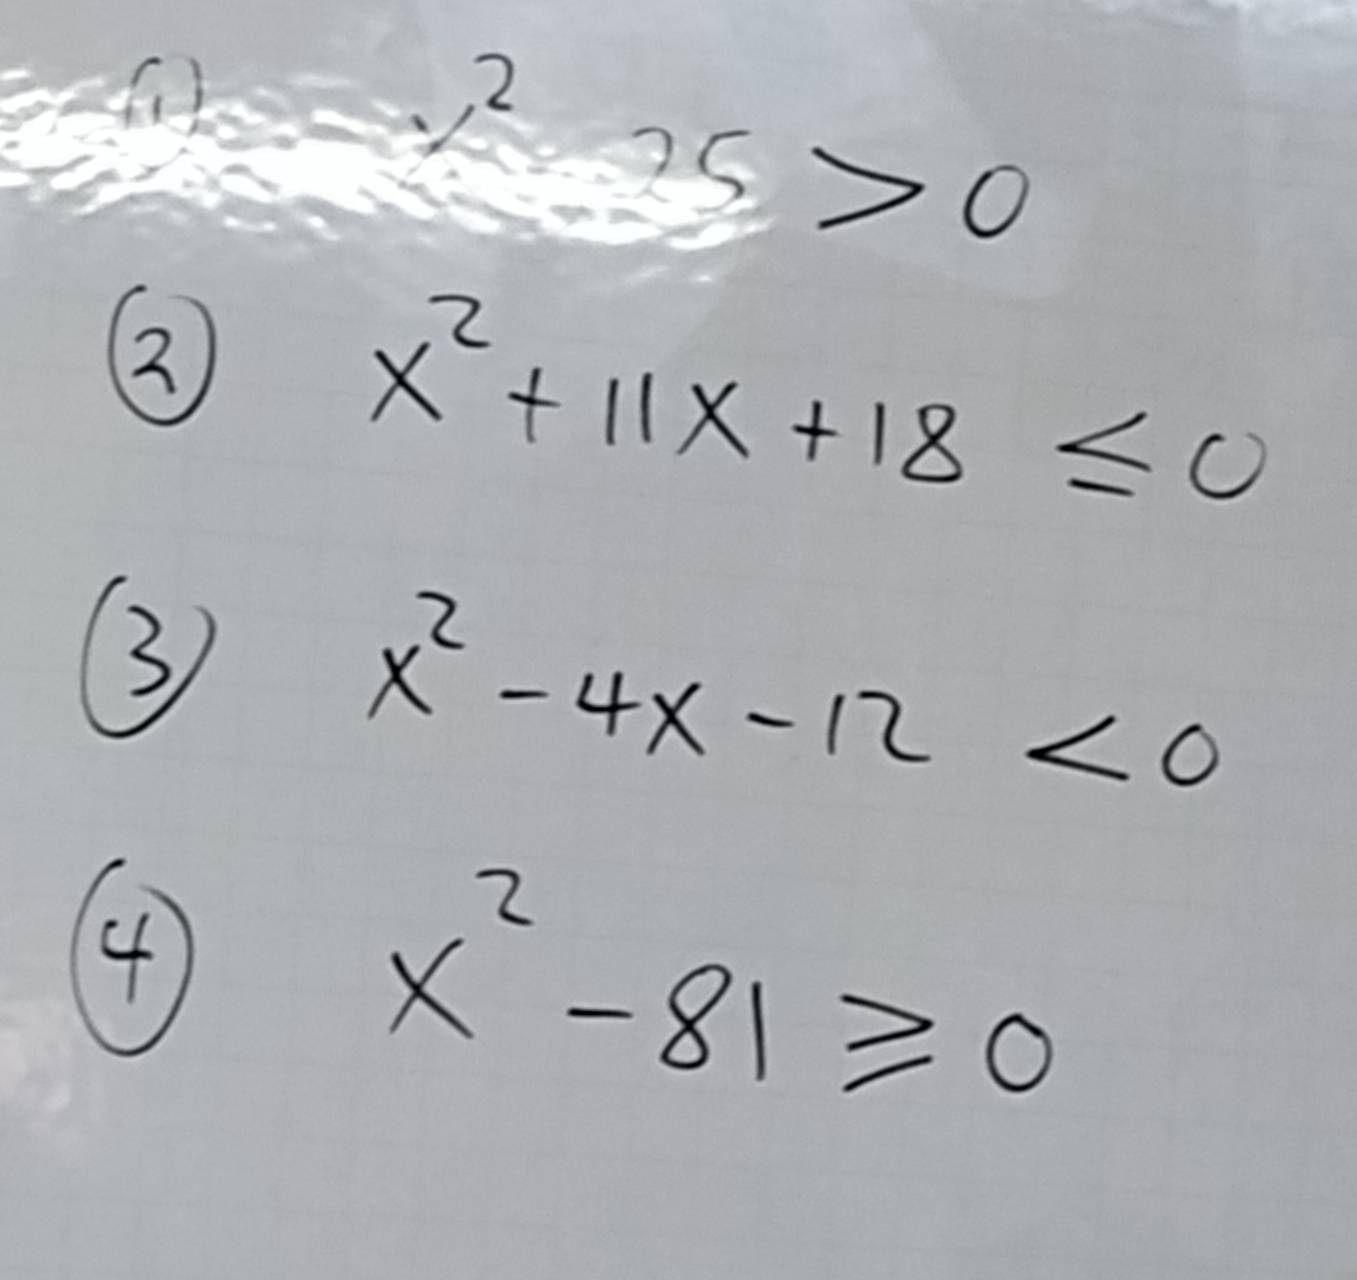 ① x² 25 > 0
② x² + 11x + 18 ≦ 0
③ x² - 4x - 12 < 0
④ x² - 81 ≧ 0